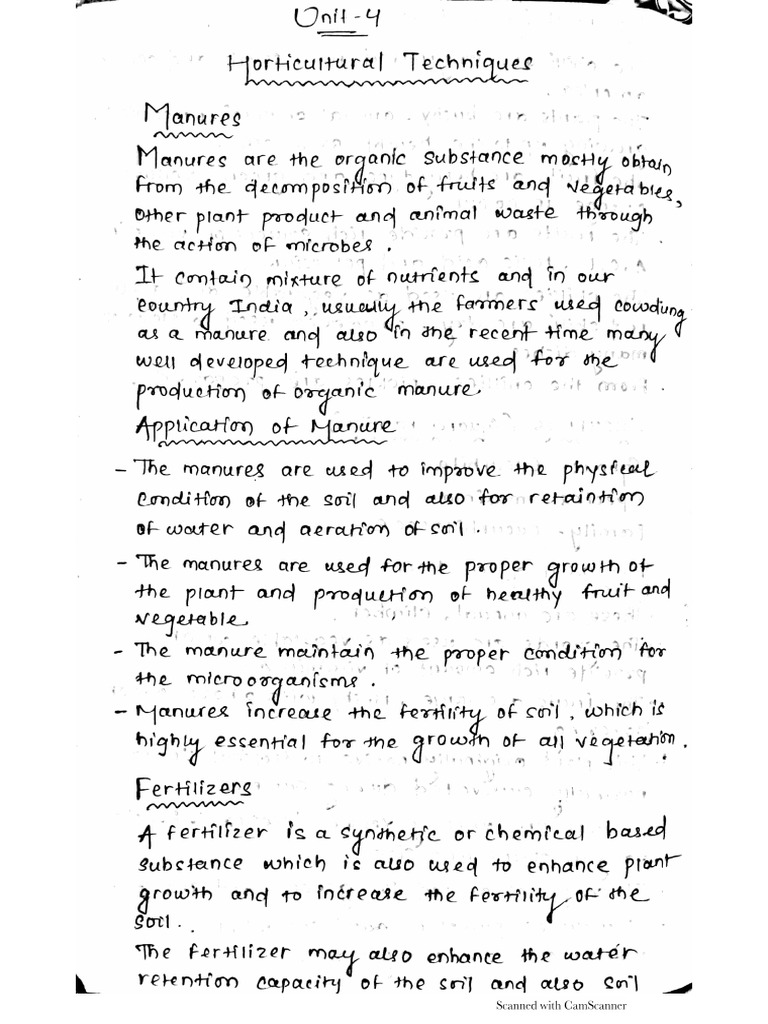 Unit-4
Horticultural Techniques
Manures
Manures are the organic substance mostly obtain
from the decomposition of fruits and vegetables,
other plant product and animal waste through
the action of microbes.
It contain mixture of nutrients and in our
country India, usually the farmers used cowdung
as a manure and also in the recent time many
well developed technique are used for the
production of organic manure.
Application of Manure
- The manures are used to improve the physical
condition of the soil and also for retaintion
of water and aeration of soil.
- The manures are used for the proper growth of
the plant and production of healthy fruit and
vegetable.
- The manure maintain the proper condition for
the microorganisms.
- Manures increase the fertility of soil, which is
highly essential for the growth of all vegetation.
Fertilizers
A fertilizer is a synthetic or chemical based
substance which is also used to enhance plant
growth and to increase the fertility of the
soil.
The fertilizer may also enhance the water
retention capacity of the soil and also soil
Scanned with CamScanner